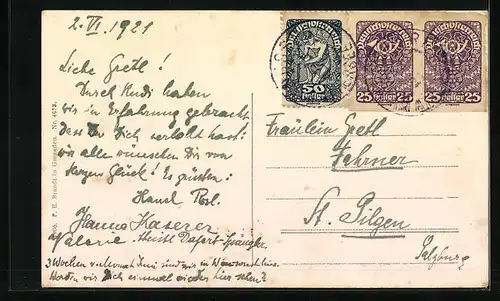 2. VI. 1921
Liebe Gretl!
Durch Rudi haben
wir in Erfahrung gebracht
dass Du Dich verlobt hast:
wir alle wünschen Dir von
Herzen Glück! Es grüssen:
Hansl
Hanna Kaserer
Valerie
3 Wochen sind wir in
Werden wir Dich einmal wieder hier sehen?
P. E. Brandt in Gmunden. Nr. 4572.
Deutschösterreich
50
Heller
Deutschösterreich
25 Heller 25
Deutschösterreich
25 Heller 25
Fräulein Gretl
Fehrner
St. Gilgen
Salzburg